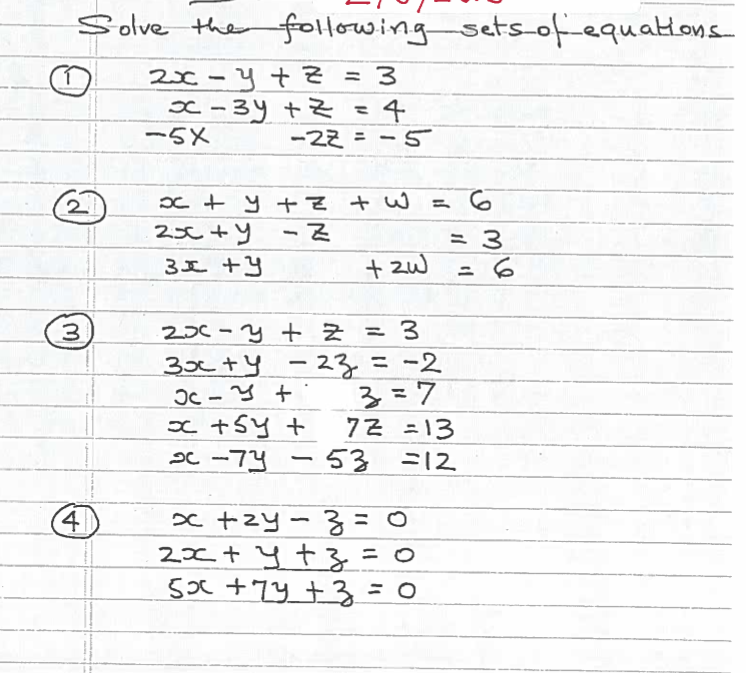 Solve the following sets of equations
① 2x - y + z = 3
x - 3y + z = 4
-5x -2z = -5
② x + y + z + w = 6
2x + y - z = 3
3x + y + 2w = 6
③ 2x - y + z = 3
3x + y - 2z = -2
x - y + z = 7
x + 5y + 7z = 13
x - 7y - 5z = 12
④ x + 2y - z = 0
2x + y + z = 0
5x + 7y + z = 0